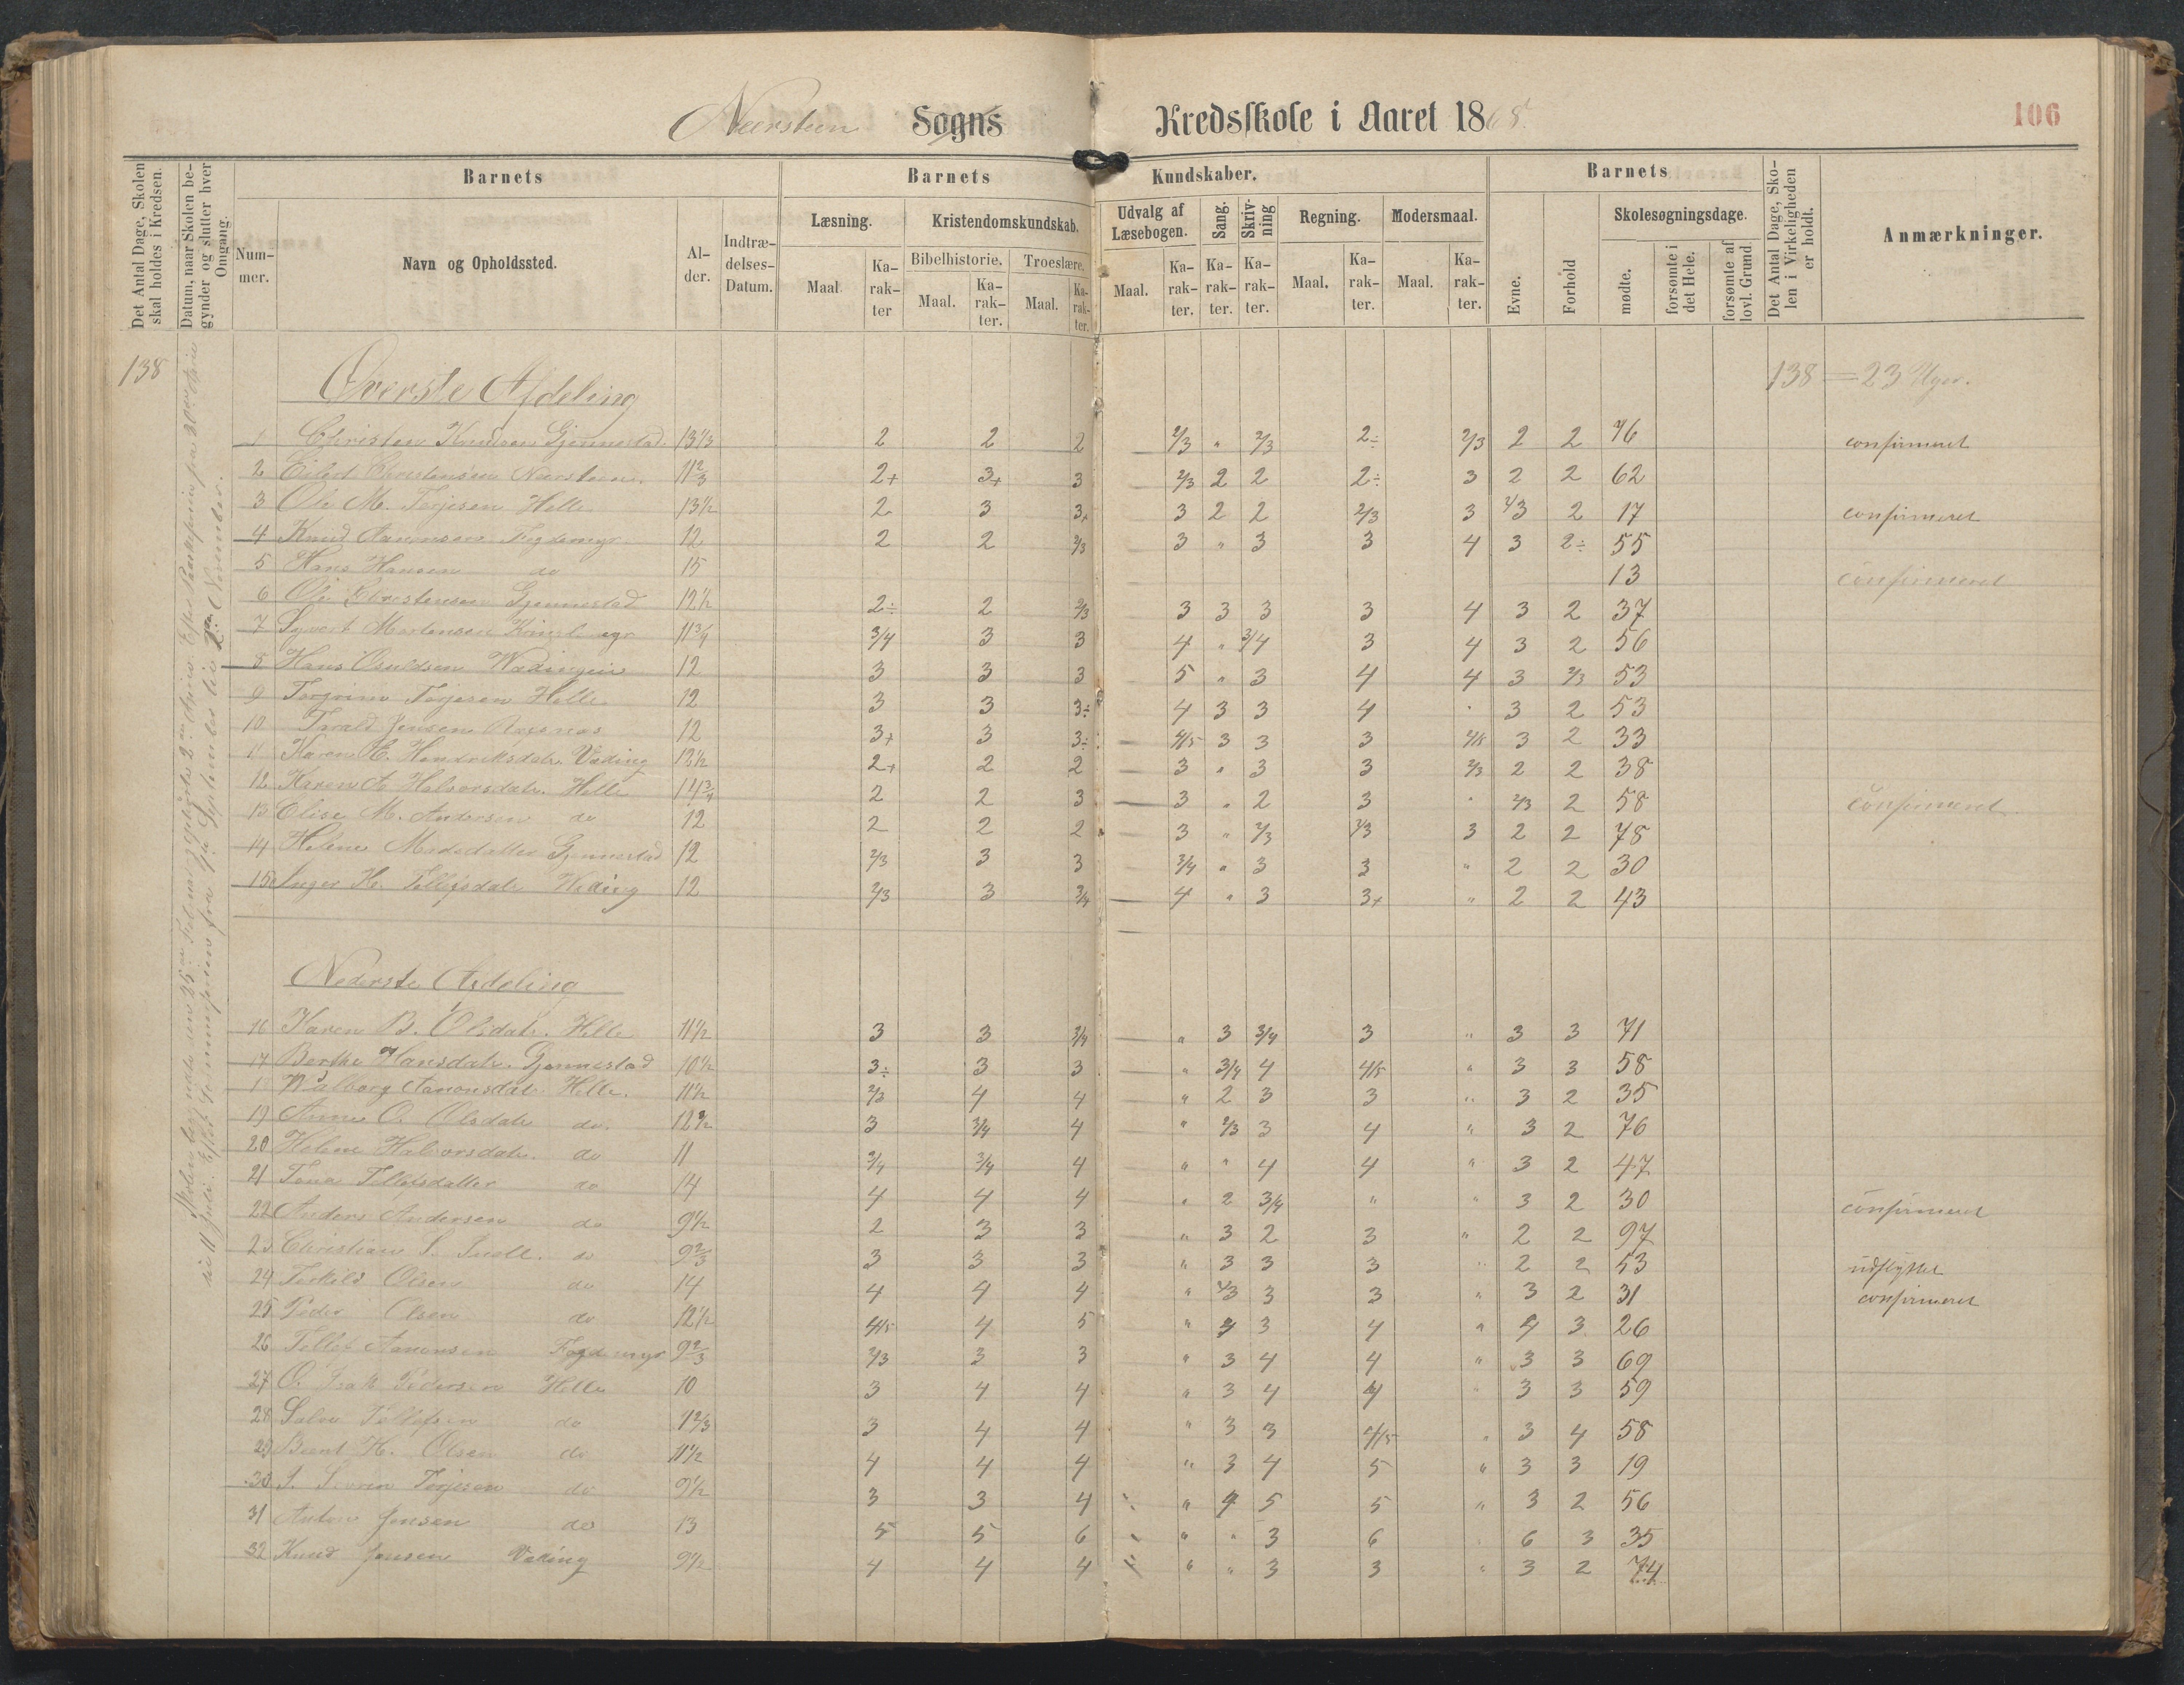 Neersteen Sogns Kredsskole i Aaret 1868.
106
Det Antal Dage, Skolen skal holdes i Kredsen.
Datum, naar Skolen begynder og slutter hver Omgang.
Barnets
Nummer.
Navn og Opholdssted.
Alder.
Indtrædelses-Datum.
Barnets Kundskaber.
Læsning.
Maal
Karakter
Kristendomskundskab.
Bibelhistorie.
Maal.
Karakter.
Troeslære.
Maal.
Karakter.
Udvalg af Læsebogen.
Maal.
Karakter.
Sang.
Karakter.
Skrivning
Karakter.
Regning.
Maal.
Karakter.
Modersmaal.
Maal.
Karakter.
Barnets
Evne.
Forhold
Skolesøgningsdage.
mødte.
forsømte i det Hele.
forsømte af lovl. Grund
Det Antal Dage, Skolen i Virkeligheden er holdt.
Anmærkninger.
138 138 = 23 Uger.
Øverste Afdeling
1 Christen Knudsen Gjennestad 13 1/3 2 2 2 2/3 " 2/3 2÷ 2/3 2 2 76 confirmeret
2 Eilert Christensen Neersteen 11 2/3 2+ 3+ 3 2/3 2 2 2÷ 3 2 2 62
3 Ole M. Terjesen Helle 13 1/2 2 3 3+ 3 2 2 2/3 3 2/3 2 17 confirmeret
4 Knud Aanonsen 12 2 2 2/3 3 " 3 3 4 3 2÷ 55
5 Hans Hansen do 15 13 confirmeret
6 Ole Christensen Gjennestad 12 1/2 2÷ 2 2/3 3 3 3 3 4 3 2 37
7 Syvert Mortensen 11 3/4 3/4 3 3 4 " 3/4 3 4 3 2 56
8 Hans Osuldsen 12 3 3 3 5 " 3 4 4 3 2/3 53
9 Terjesen Helle 12 3 3 3÷ 4 3 3 4 . 3 2 53
10 Tarald Jensen 12 3+ 3 3÷ 4/5 3 3 3 4/5 3 2 33
11 Karen E. Hendriksdatr. Væding 12 1/2 2+ 2 2 3 " 3 3 2/3 2 2 38
12 Karen A Halvorsdatr. Helle 14 3/4 2 2 3 3 " 2 3 . 2/3 2 58 confirmeret
13 Elise M. Andersen do 12 2 2 2 3 " 2/3 2/3 3 2 2 78
14 Helene Madsdatter Gjennestad 12 2/3 3 3 3/4 " 3 3 " 2 2 30
15 Inger Ke. Tellefsdatr Væding 12 2/3 3 3/4 4 " 3 3+ " 2 2 43
Nederste Afdeling
16 Karen B. Olsdatr. Helle 11 1/2 3 3 3/4 " 3 3/4 3 " 3 3 71
17 Berthe Hansdatr. Gjennestad 10 1/2 3÷ 3 3 " 3/4 4 4/5 " 3 3 58
18 Walborg Aanonsdatr. Helle. 11 1/2 2/3 4 4 " 2 3 3 " 3 2 35
19 Anne O. Olsdatr do. 12 1/2 3 3/4 4 " 2/3 3 4 " 3 2 76
20 Helene Halvorsdatr. do 11 3/4 3/4 4 " " 4 4 " 3 2 47
21 Tone Tellefsdatter do 14 4 4 4 " 2 3/4 " " 3 2 30 confirmeret
22 Anders Andersen do 9 1/2 2 3 3 " 3 2 3 " 2 2 97
23 Christian S. do 9 2/3 3 3 3 " 3 3 3 " 2 2 53 udflyttet
24 Terkild Olsen do 14 4 4 4 " 2/3 3 3 " 3 2 31 confirmeret
25 Peder Olsen do 12 1/2 4/5 4 5 " 4 3 4 " 4 3 26
26 Tellef Aanonsen 9 2/3 2/3 3 3 " 3 4 4 " 3 3 69
27 O. Isak Pedersen Helle 10 3 4 4 " 3 4 4 " 3 3 59
28 Salve Tellefsen do 9 2/3 3 4 4 " 3 3 4/5 " 3 4 58
29 Bernt K. Olsen do 11 1/2 4 4 4 " 3 4 5 " 3 3 19
30 Terjesen do 9 1/2 3 3 4 " 4 5 5 " 3 2 56
31 Anton Jensen do 13 5 5 6 " " 3 6 6 3 35
32 Knud Jensen Væding 9 1/2 4 4 4 " " 3 3 " 3 2 74